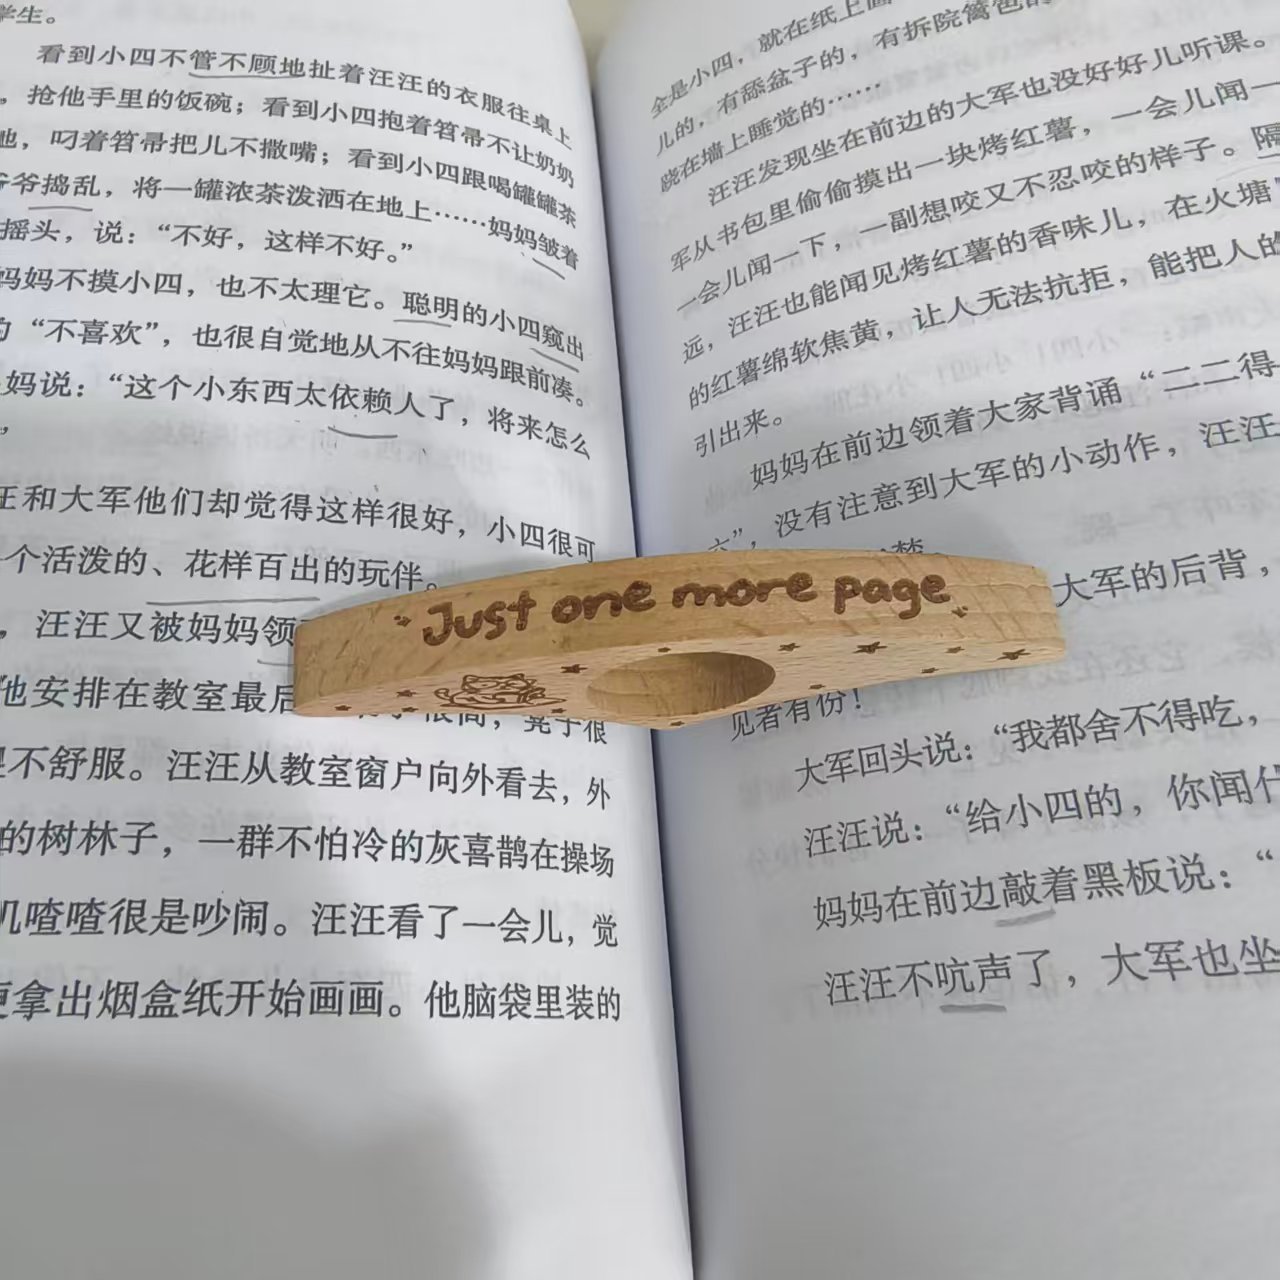 学生。
看到小四不管不顾地扯着汪汪的衣服往桌上
，抢他手里的饭碗；看到小四抱着笤帚不让奶奶
地，叼着笤帚把儿不撒嘴；看到小四跟喝罐罐茶
爷爷捣乱，将一罐浓茶泼洒在地上……妈妈皱着
摇头，说：“不好，这样不好。”
妈妈不摸小四，也不太理它。聪明的小四窥出
的“不喜欢”，也很自觉地从不往妈妈跟前凑。
妈说：“这个小东西太依赖人了，将来怎么
”
汪和大军他们却觉得这样很好，小四很可
个活泼的、花样百出的玩伴。
，汪汪又被妈妈领
他安排在教室最后
凳子很
不舒服。汪汪从教室窗户向外看去，外
的树林子，一群不怕冷的灰喜鹊在操场
叽喳喳很是吵闹。汪汪看了一会儿，觉
便拿出烟盒纸开始画画。他脑袋里装的
全是小四，就在纸上画
儿的，有舔盆子的，有拆院篱笆的
跷在墙上睡觉的……
汪汪发现坐在前边的大军也没好好儿听课。
军从书包里偷偷摸出一块烤红薯，一会儿闻一
一会儿闻一下，一副想咬又不忍咬的样子。隔
远，汪汪也能闻见烤红薯的香味儿，在火塘
的红薯绵软焦黄，让人无法抗拒，能把人的
引出来。
妈妈在前边领着大家背诵“二二得
六”，没有注意到大军的小动作，汪汪
大军的后背，
见者有份！
大军回头说：“我都舍不得吃，
汪汪说：“给小四的，你闻什
妈妈在前边敲着黑板说：“
汪汪不吭声了，大军也坐
Just one more page